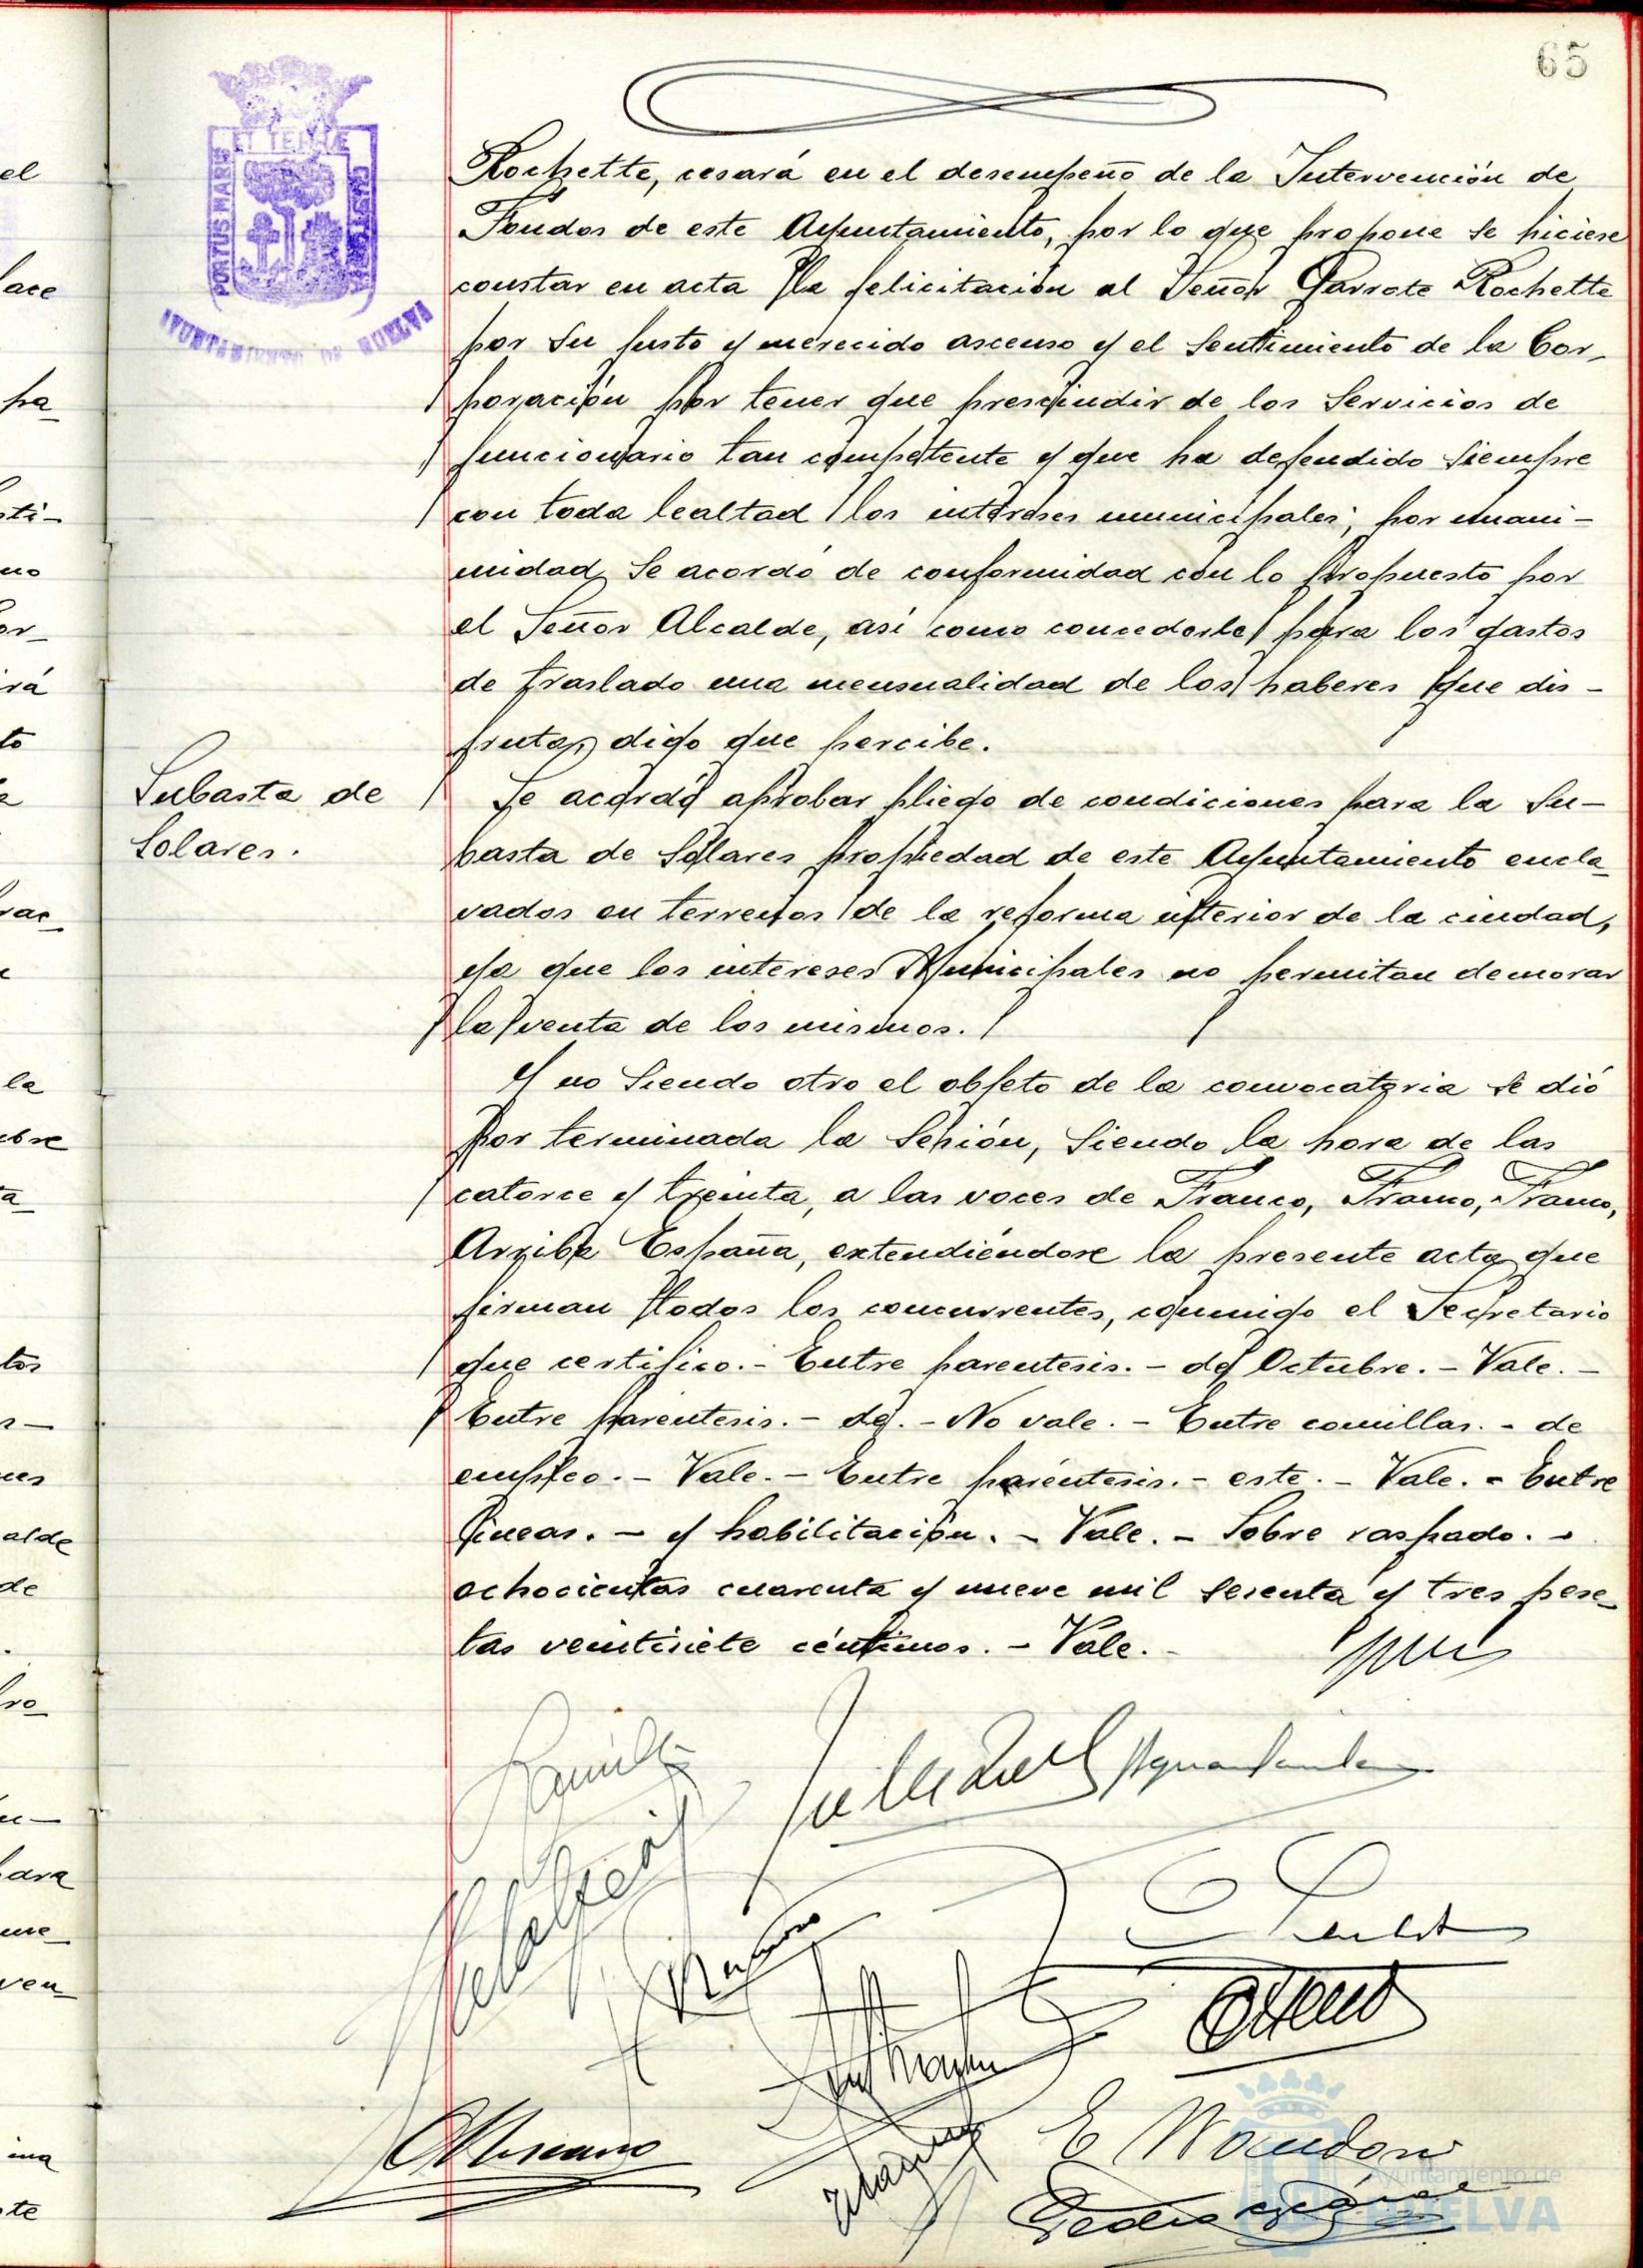 65
PORTUS MARIS ET TERRÆ CUSTODIA
AYUNTAMIENTO DE HUELVA
Rochette, cesará en el desempeño de la Intervención de
Fondos de este Ayuntamiento, por lo que propone se hiciese
constar en acta la felicitación al Señor Garrote Rochette
por su justo y merecido ascenso y el sentimiento de la Cor-
poración por tener que prescindir de los Servicios de
funcionario tan competente y que ha defendido siempre
con toda lealtad los intereses municipales; por unani-
midad se acordó de conformidad con lo propuesto por
el Señor Alcalde, así como concederle para los gastos
de traslado una mensualidad de los haberes que dis-
fruta, digo que percibe.
Subasta de
Solares.
Se acordó aprobar pliego de condiciones para la Su-
basta de Solares propiedad de este Ayuntamiento encla-
vados en terrenos de la reforma interior de la ciudad,
ya que los intereses Municipales no permitan demorar
la venta de los mismos.
Y no siendo otro el objeto de la convocatoria se dió
por terminada la Sesión, siendo la hora de las
catorce y treinta, a las voces de Franco, Franco, Franco,
Arriba España, extendiéndose la presente acta que
firman todos los concurrentes, conmigo el Secretario
que certifico.- Entre parentesis.- de Octubre.- Vale.-
Entre parentesis.- de.- No vale.- Entre comillas.- de
empleo.- Vale.- Entre paréntesis.- este.- Vale.- Entre
líneas.- y habilitación.- Vale.- Sobre raspado.-
ochocientas cuarenta y nueve mil sesenta y tres pese-
tas veintisiete céntimos.- Vale.-
E Mandoni
Pedro
Ayuntamiento de
HUELVA